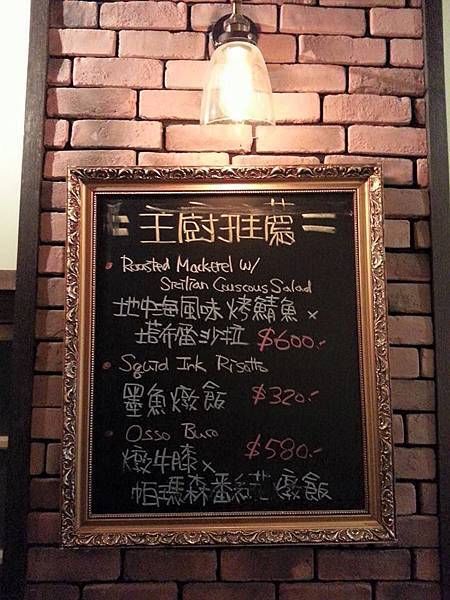 = 主廚推薦 =
Roasted Mackerel w/
Sicilian Cuscous Salad
地中海風味烤鯖魚 x
塔布蕾沙拉 $600.-
Squid Ink Risotto
墨魚燉飯 $320.-
Osso Buco
$580.-
燉牛膝 x
帕瑪森番紅花燉飯